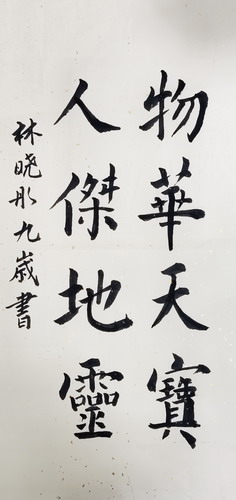 物華天寶
人傑地靈
林晓彤九歲書